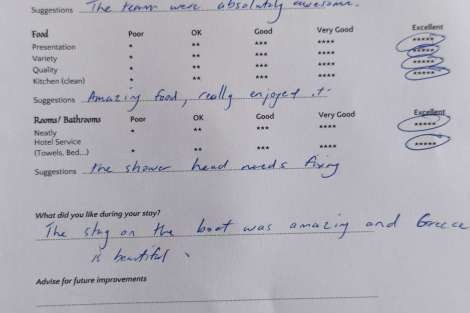 Suggestions The team were absolutely awesome.
Food Poor OK Good Very Good Excellent
Presentation * ** *** **** *****
Variety * ** *** **** *****
Quality * ** *** **** *****
Kitchen (clean) * ** *** **** *****
Suggestions Amazing food, really enjoyed it
Rooms/ Bathrooms Poor OK Good Very Good Excellent
Neatly * ** *** **** *****
Hotel Service
(Towels, Bed...) * ** *** **** *****
Suggestions the shower head needs fixing
What did you like during your stay?
The stay on the boat was amazing and Greece
is beautiful.
Advise for future improvements